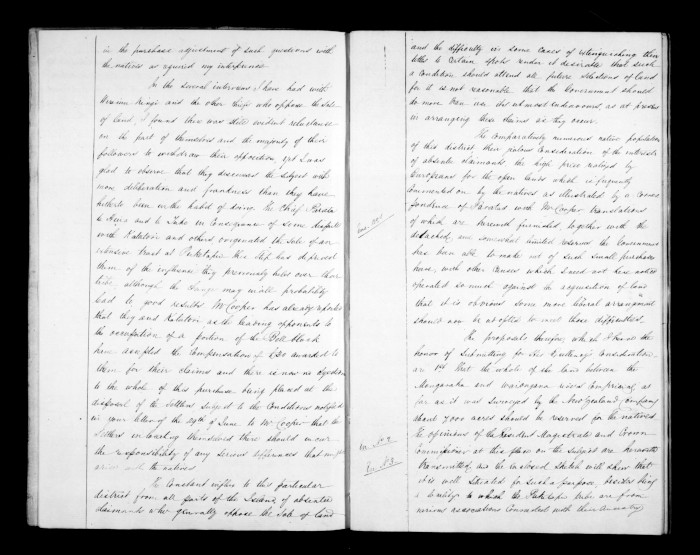 in the purchase adjustment of such questions with
the natives as required my interference.
In the several interviews I have had with
Wiremu Kingi and the other Chiefs who oppose the sale
of land, I found there was still evident reluctance
on the part of themselves and the majority of their
followers to withdraw their opposition yet I was
glad to observe that they discussed the subject with
more deliberation and frankness than they have
hitherto been in the habit of doing. The Chiefs
and in consequence of some disputes
with Katatore and others the sale of an
extensive tract at this step has deprived
them of the influence they previously held over their
tribe although the change may in all probability
lead to good results. Mr Cooper has already reported
that they and Katatore as the leading opponents to
the occupation of a portion of the Bell Block
have accepted the compensation of awarded to
them for their claims and there is now no objection
to the whole of this purchase being placed at the
disposal of the Settlers subject to the conditions notified
in your letter of the 29th of June to Mr Cooper that the
Settlers in locating themselves there should incur
the responsibility of any serious differences that might
arise with the natives
The constant visits to this particular
district from all parts of the Island of absentee
claimants who generally oppose the sale of land
and the difficulty in some cases of extinguishing their
titles to certain spots render it desirable that such
a condition should attend all future selections of land
for it is not reasonable that the Government should
do more than use its utmost endeavours, as at present
in arranging these claims as they occur.
The comparatively numerous native population
of this district, their jealous consideration of the interests
of absentee claimants the high price realized by
Europeans for the open lands which is frequently
commented on by the natives as illustrated by a corres-
pondence of with Mr Cooper translations
of which are herewith furnished, together with the
detached, and somewhat limited reserves the Government
has been able to make out of such small purchases
have, with other causes which I need not here notice
operated so much against the acquisition of land
that it is obvious some more liberal arrangement
should now be adopted to meet those difficulties.
The proposals therefore, which I have the
honor of submitting for His Excellency's consideration
are 1st That the whole of the land between the
Mangaraka and Waiongana rivers comprising, as
far as it was surveyed by the New Zealand Company
about 7000 acres should be reserved for the natives.
The opinions of the Resident Magistrate and Crown
Commissioner at this place on the subject are herewith
transmitted, and the enclosed sketch will shew that
it is well situated for such a purpose, besides being
a locality to which the tribe are from
various associations connected with their ancestry